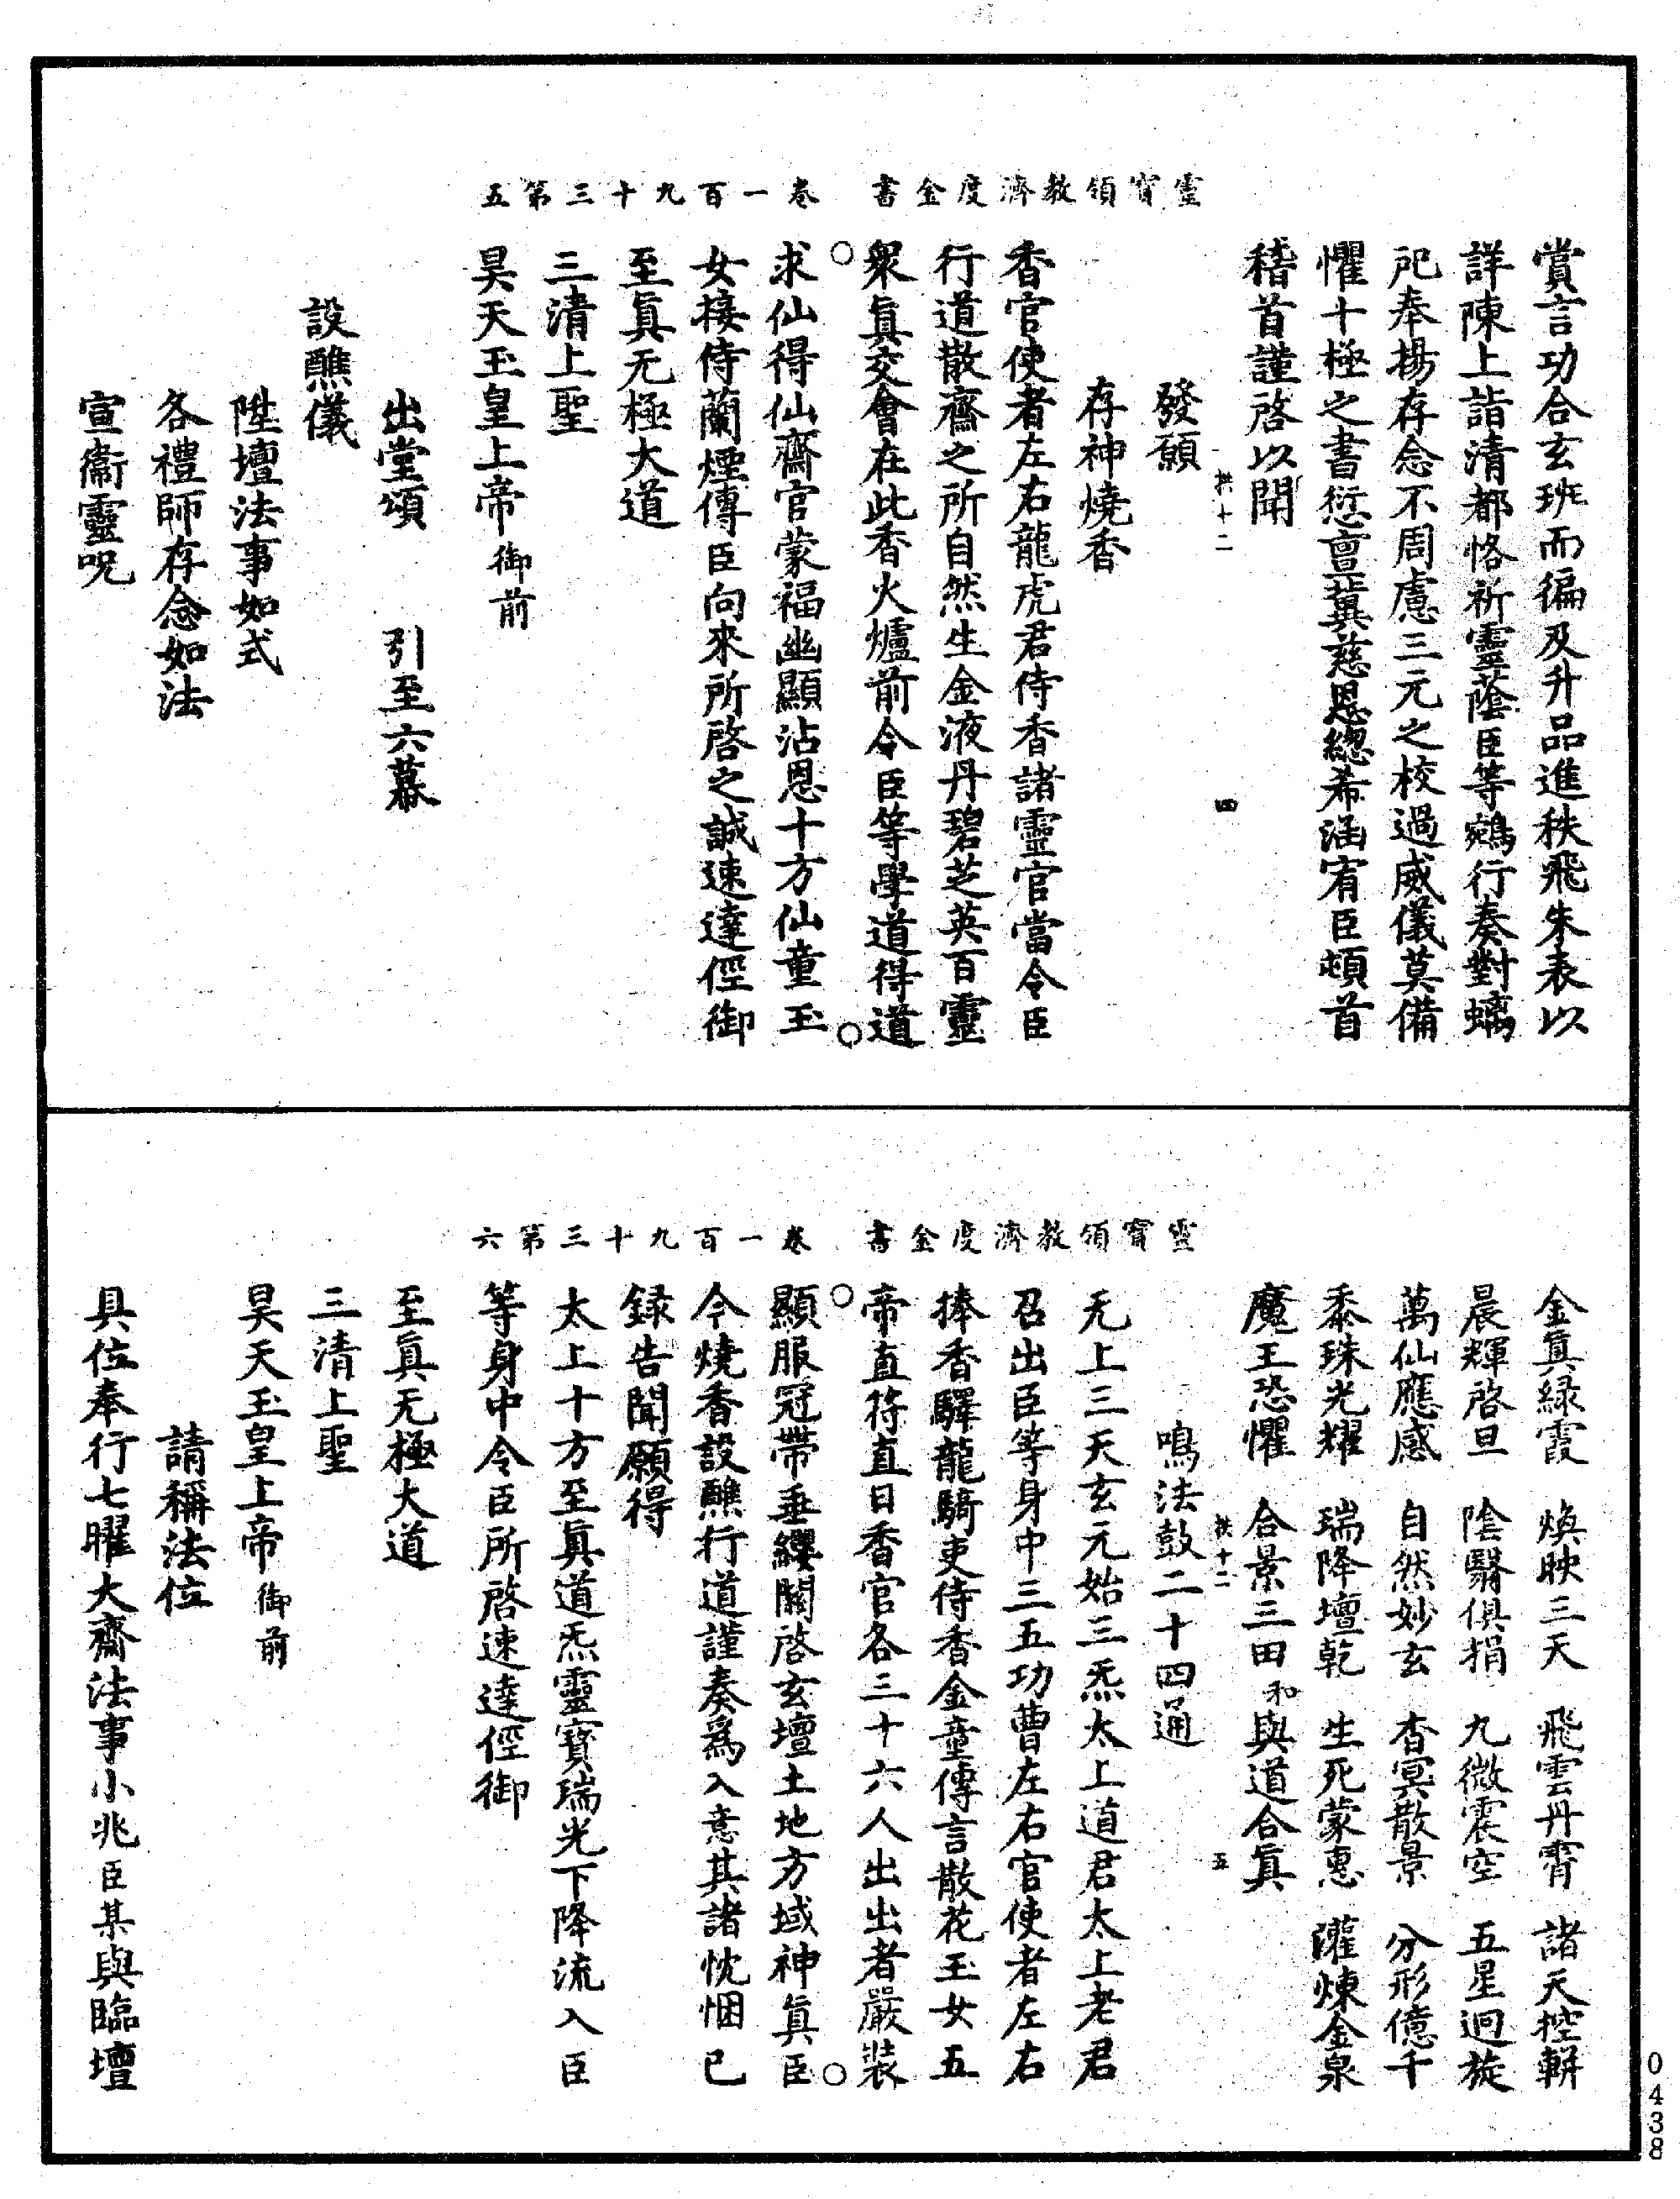 靈寶領教濟度金書　卷一百九十三第五
賞言功合玄班而徧及升品進秩飛朱表以
詳陳上詣清都恪祈靈蔭臣等鵷行奏對螭
戺奉揚存念不周慮三元之校過威儀莫備
懼十極之書愆亶冀慈恩總希涵宥臣頓首
稽首謹啓以聞
秩十二　四
發願
存神燒香
香官使者左右龍虎君侍香諸靈官當令臣
行道散齋之所自然生金液丹碧芝英百靈
衆眞交會在此香火爐前令臣等學道得道
求仙得仙齋官蒙福幽顯沾恩十方仙童玉
女接侍蘭煙傳臣向來所啓之誠速達俓御
至眞无極大道
三清上聖
昊天玉皇上帝御前
出堂頌　引至六幕
設醮儀
陞壇法事如式
各禮師存念如法
宣衞靈呪
靈寶領教濟度金書　卷一百九十三第六
金眞緑霞　煥映三天　飛雲丹霄　諸天控軿
晨輝啓旦　陰翳俱捐　九微震空　五星迴旋
萬仙應感　自然妙玄　杳冥散景　分形億千
黍珠光耀　瑞降壇乾　生死蒙惠　灌煉金泉
魔王恐懼　合景三田和與道合眞
秩十二　五
鳴法鼓二十四通
无上三天玄元始三炁太上道君太上老君
召出臣等身中三五功曹左右官使者左右
捧香驛龍騎吏侍香金童傳言散花玉女五
帝直符直日香官各三十六人出出者嚴裝
顯服冠帶垂纓關啓玄壇土地方域神眞臣
今燒香設醮行道謹奏爲入意其諸忱悃已
録告聞願得
太上十方至眞道炁靈寶瑞光下降流入臣
等身中令臣所啓速達俓御
至眞无極大道
三清上聖
昊天玉皇上帝御前
請稱法位
具位奉行七曜大齋法事小兆臣某與臨壇
0438